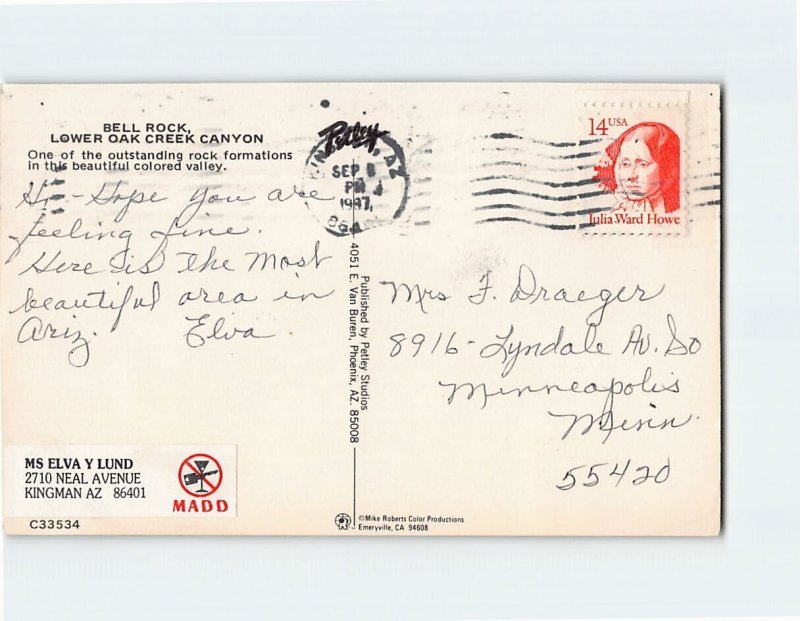 BELL ROCK,
LOWER OAK CREEK CANYON
One of the outstanding rock formations
in this beautiful colored valley.
Hi - Hope you are
feeling fine.
Here is the most
beautiful area in
Ariz. Elva
MS ELVA Y LUND
2710 NEAL AVENUE
KINGMAN AZ 86401
MADD
C33534
Petley
AZ
SEP
PM
1987
Published by Petley Studios
4051 E. Van Buren, Phoenix, AZ. 85008
©Mike Roberts Color Productions
Emeryville, CA 94608
14 USA
Julia Ward Howe
Mrs F. Draeger
8916 - Lyndale Av. So
Minneapolis
Minn.
55420